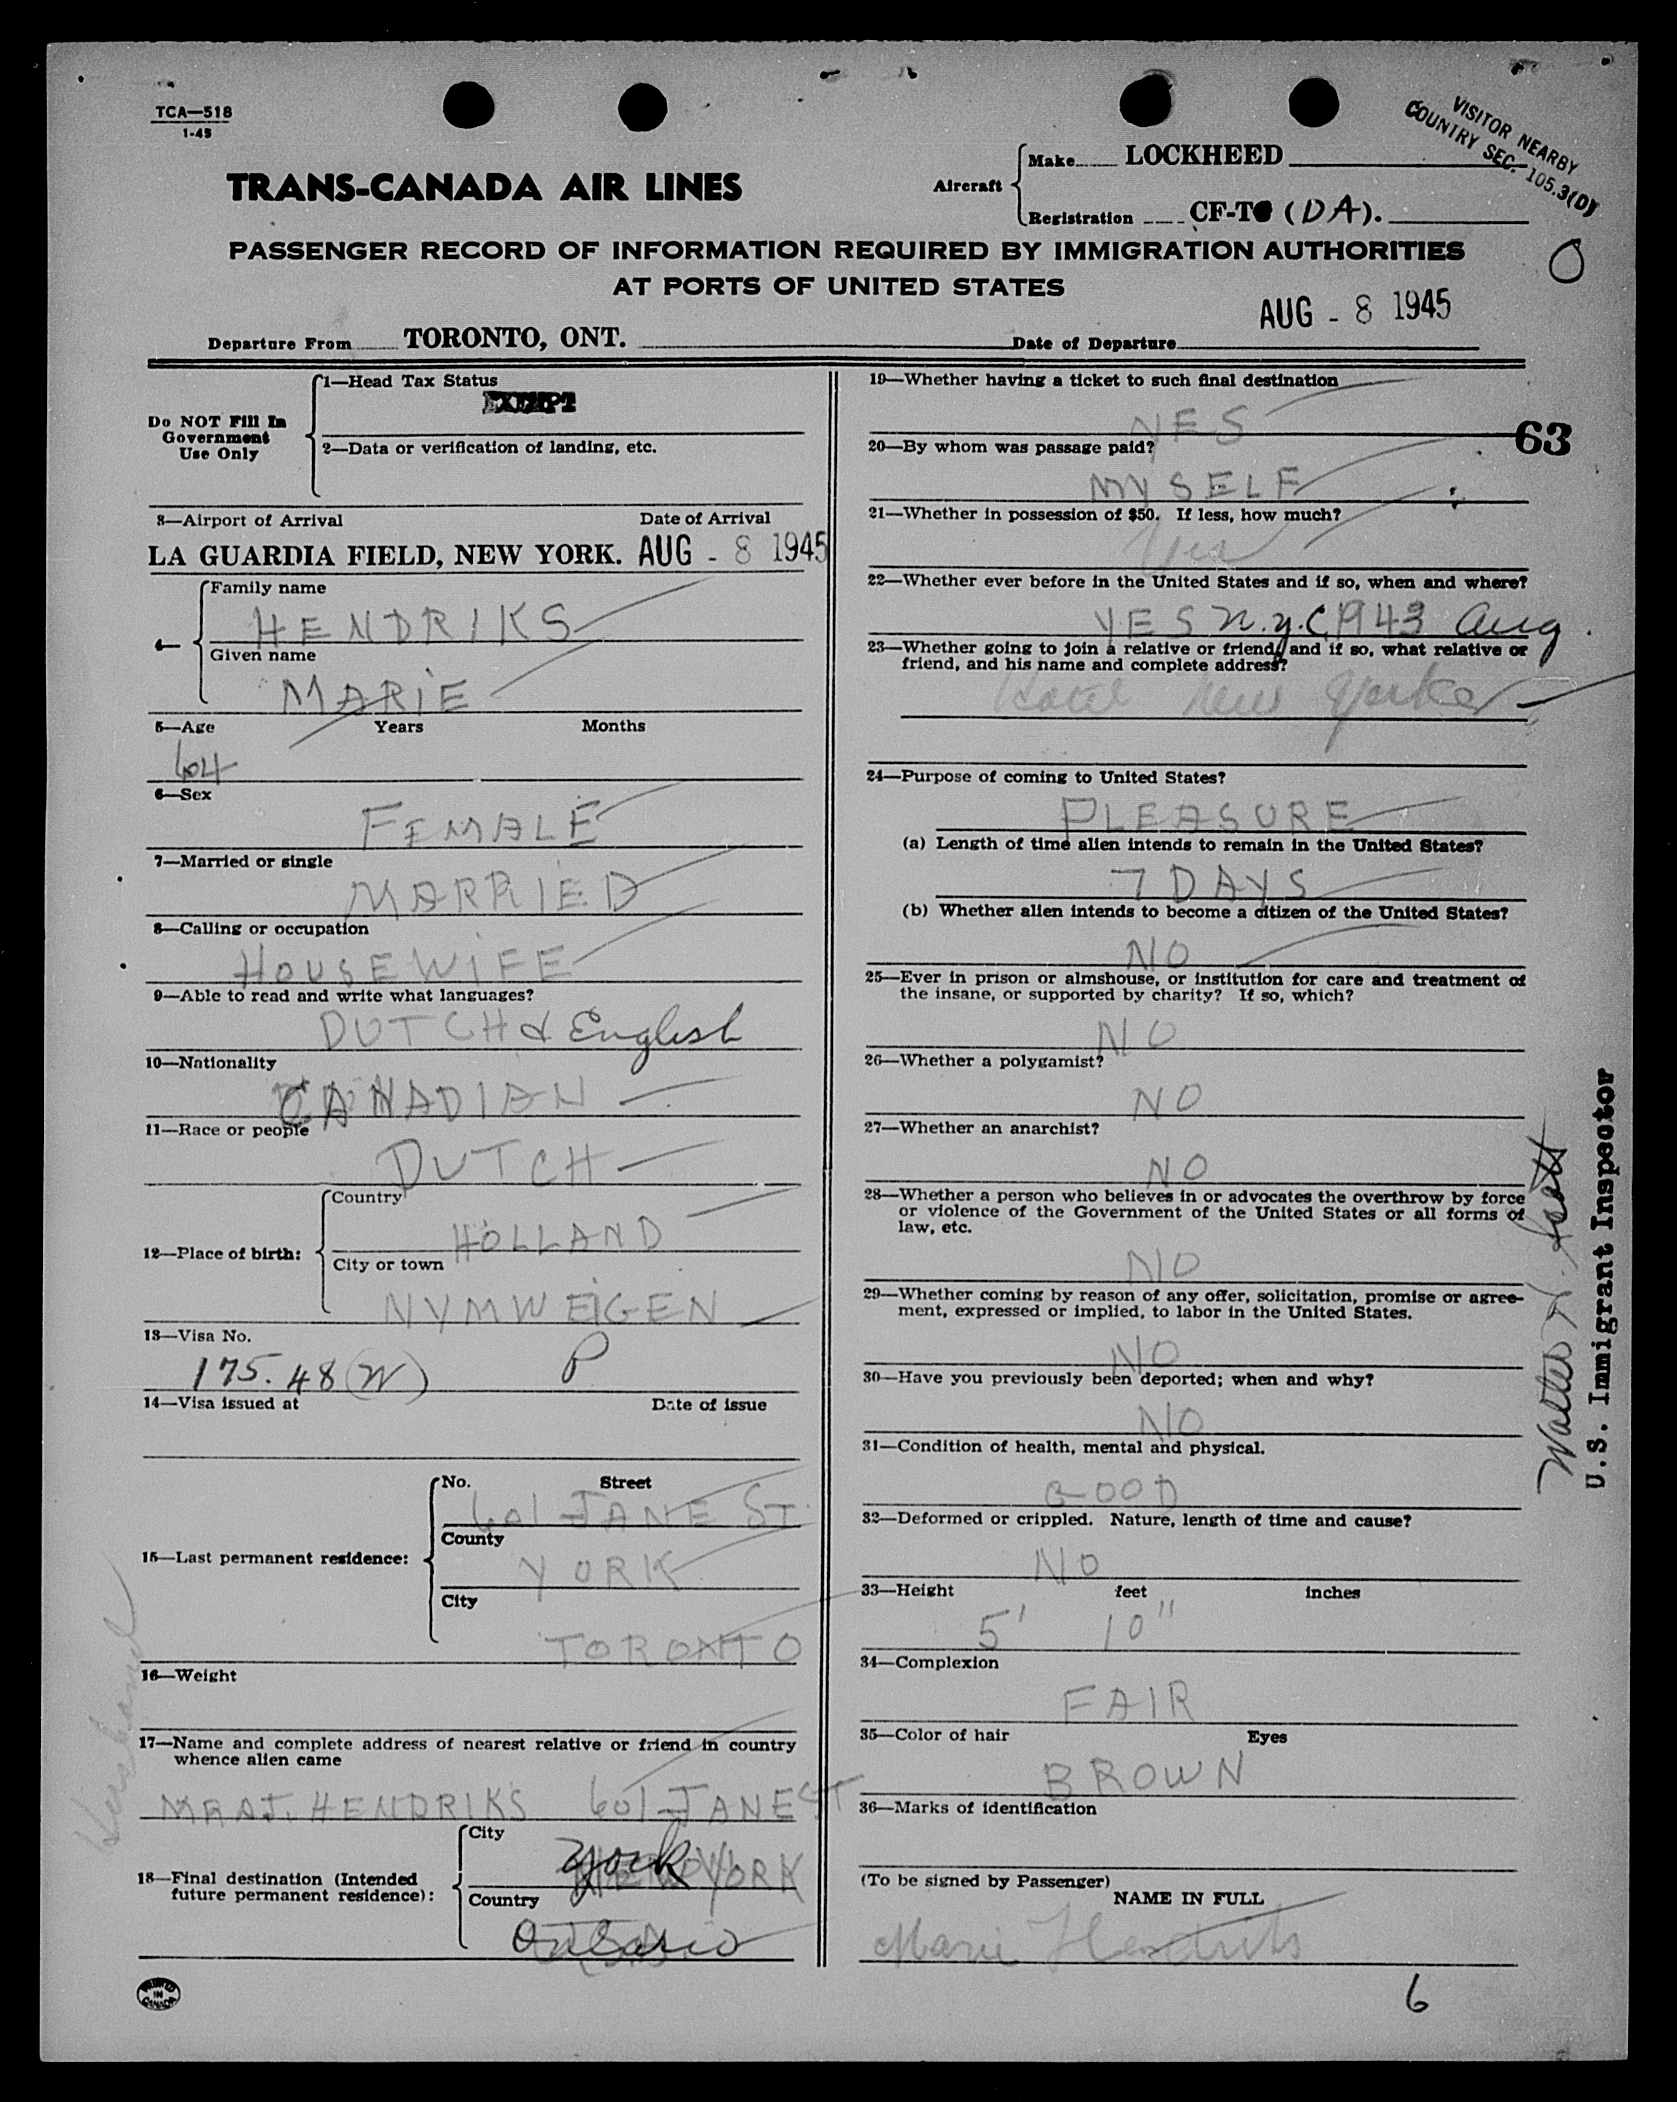 TCA—518
1-45
VISITOR NEARBY
COUNTRY SEC. 105.3(D)
TRANS-CANADA AIR LINES
Aircraft
Make LOCKHEED
Registration CF-T (DA).
PASSENGER RECORD OF INFORMATION REQUIRED BY IMMIGRATION AUTHORITIES
AT PORTS OF UNITED STATES
AUG - 8 1945
Departure From TORONTO, ONT. Date of Departure
Do NOT Fill In
Government
Use Only
1—Head Tax Status
EXEMPT
2—Data or verification of landing, etc.
3—Airport of Arrival Date of Arrival
LA GUARDIA FIELD, NEW YORK. AUG - 8 1945
4—
Family name
HENDRIKS
Given name
MARIE
5—Age Years Months
64
6—Sex
FEMALE
7—Married or single
MARRIED
8—Calling or occupation
HOUSEWIFE
9—Able to read and write what languages?
DUTCH & English
10—Nationality
CANADIAN
11—Race or people
DUTCH
12—Place of birth:
Country
HOLLAND
City or town
NYMWEIGEN
13—Visa No.
175.48 (W) P
14—Visa issued at Date of issue
15—Last permanent residence:
No. Street
601 JANE ST
County
YORK
City
TORONTO
16—Weight
17—Name and complete address of nearest relative or friend in country
whence alien came
Husband
MR A.J. HENDRIKS 601 JANE ST
18—Final destination (Intended
future permanent residence):
City
York
Country
Ontario
PRINTED
IN
CANADA
19—Whether having a ticket to such final destination
YES
63
20—By whom was passage paid?
MYSELF
21—Whether in possession of $50. If less, how much?
Yes
22—Whether ever before in the United States and if so, when and where?
YES N.Y.C. 1943 Aug
23—Whether going to join a relative or friend, and if so, what relative or
friend, and his name and complete address?
Hotel New Yorker
24—Purpose of coming to United States?
PLEASURE
(a) Length of time alien intends to remain in the United States?
7 DAYS
(b) Whether alien intends to become a citizen of the United States?
NO
25—Ever in prison or almshouse, or institution for care and treatment of
the insane, or supported by charity? If so, which?
NO
26—Whether a polygamist?
NO
27—Whether an anarchist?
NO
28—Whether a person who believes in or advocates the overthrow by force
or violence of the Government of the United States or all forms of
law, etc.
NO
29—Whether coming by reason of any offer, solicitation, promise or agree-
ment, expressed or implied, to labor in the United States.
NO
30—Have you previously been deported; when and why?
NO
31—Condition of health, mental and physical.
GOOD
32—Deformed or crippled. Nature, length of time and cause?
NO
33—Height feet inches
5' 10"
34—Complexion
FAIR
35—Color of hair Eyes
BROWN
36—Marks of identification
(To be signed by Passenger)
NAME IN FULL
Marie Hendriks
6
Walter
U.S. Immigrant Inspector